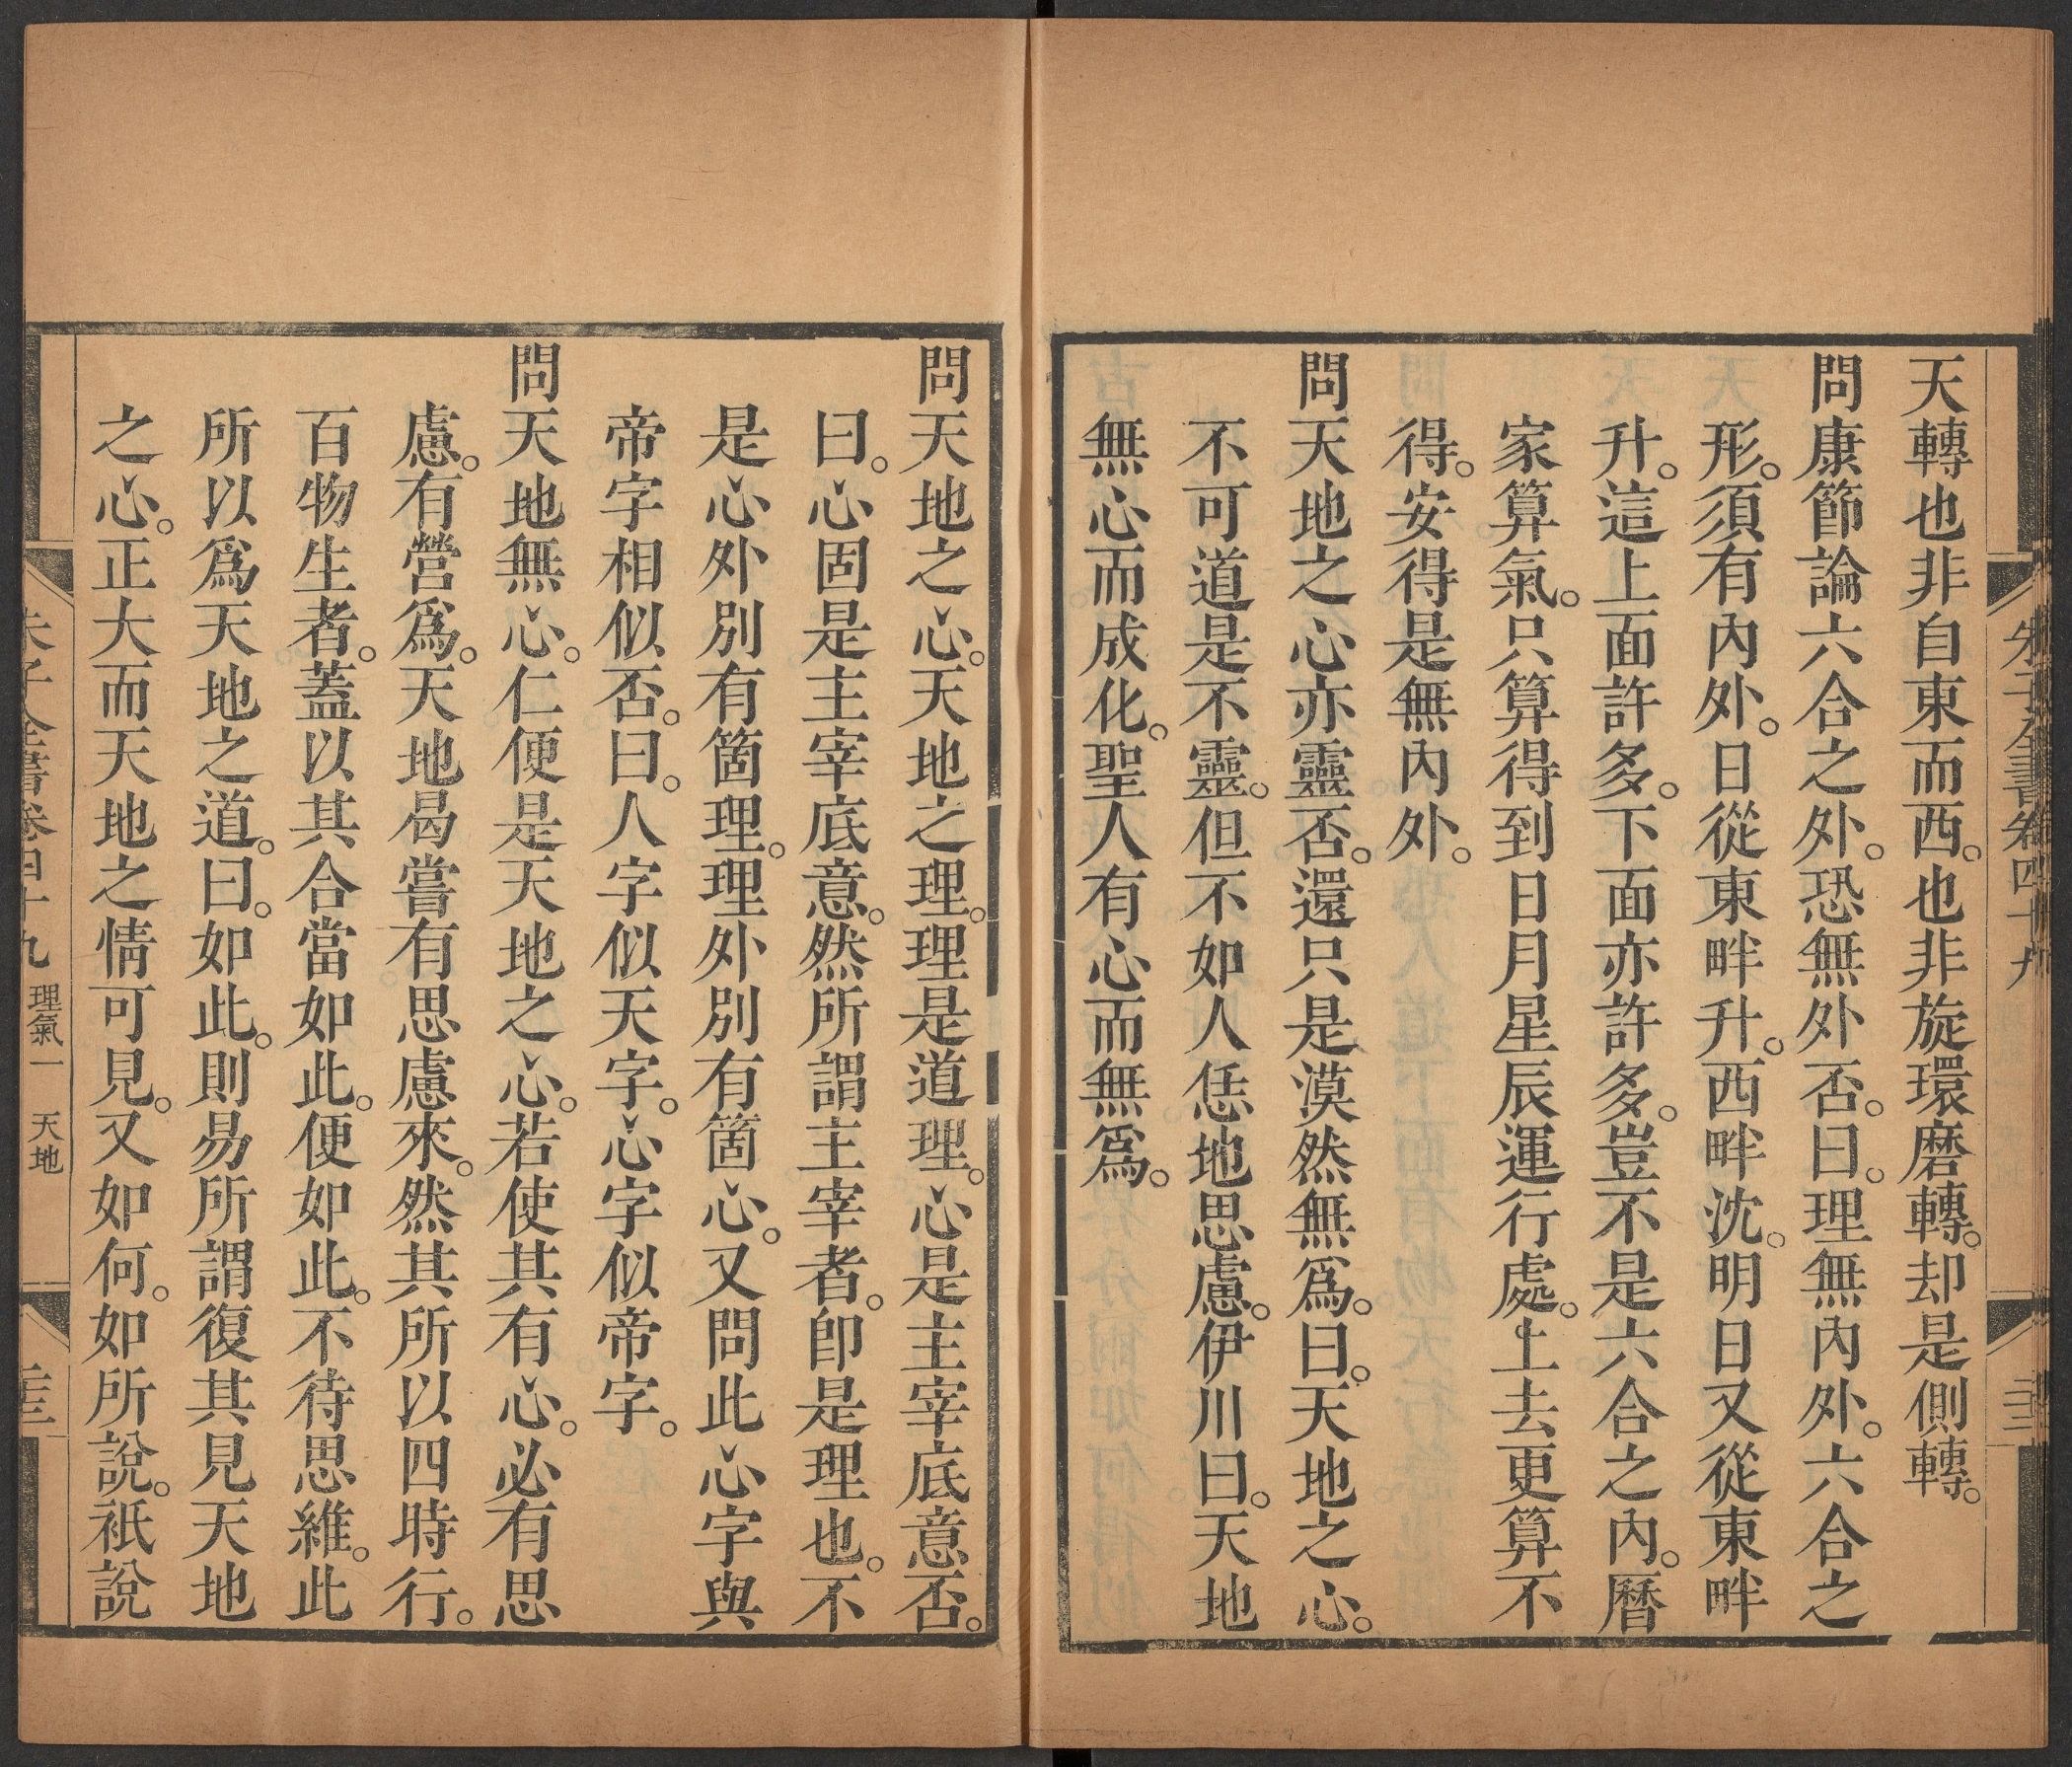 朱子全書卷四十九
二十二
天轉也非自東而西。也非旋環磨轉。却是側轉。
問康節論六合之外。恐無外否。曰。理無內外。六合之
形。須有內外。日從東畔升。西畔沈。明日又從東畔
升。這上面許多。下面亦許多。豈不是六合之內。曆
家算氣。只算得到日月星辰運行處。上去更算不
得。安得是無內外。
問天地之心亦靈否。還只是漠然無爲。曰。天地之心。
不可道是不靈。但不如人恁地思慮。伊川曰。天地
無心而成化。聖人有心而無爲。
問天地之心。天地之理。理是道理。心是主宰底意否。
曰。心固是主宰底意。然所謂主宰者。卽是理也。不
是心外別有箇理。理外別有箇心。又問此心字與
帝字相似否。曰。人字似天字。心字似帝字。
問天地無心。仁便是天地之心。若使其有心。必有思
慮。有營爲。天地曷嘗有思慮來。然其所以四時行。
百物生者。蓋以其合當如此。便如此。不待思維。此
所以爲天地之道。曰。如此。則易所謂復其見天地
之心。正大而天地之情可見。又如何。如所說。祇說
朱子全書卷四十九 理氣一 天地
二十三